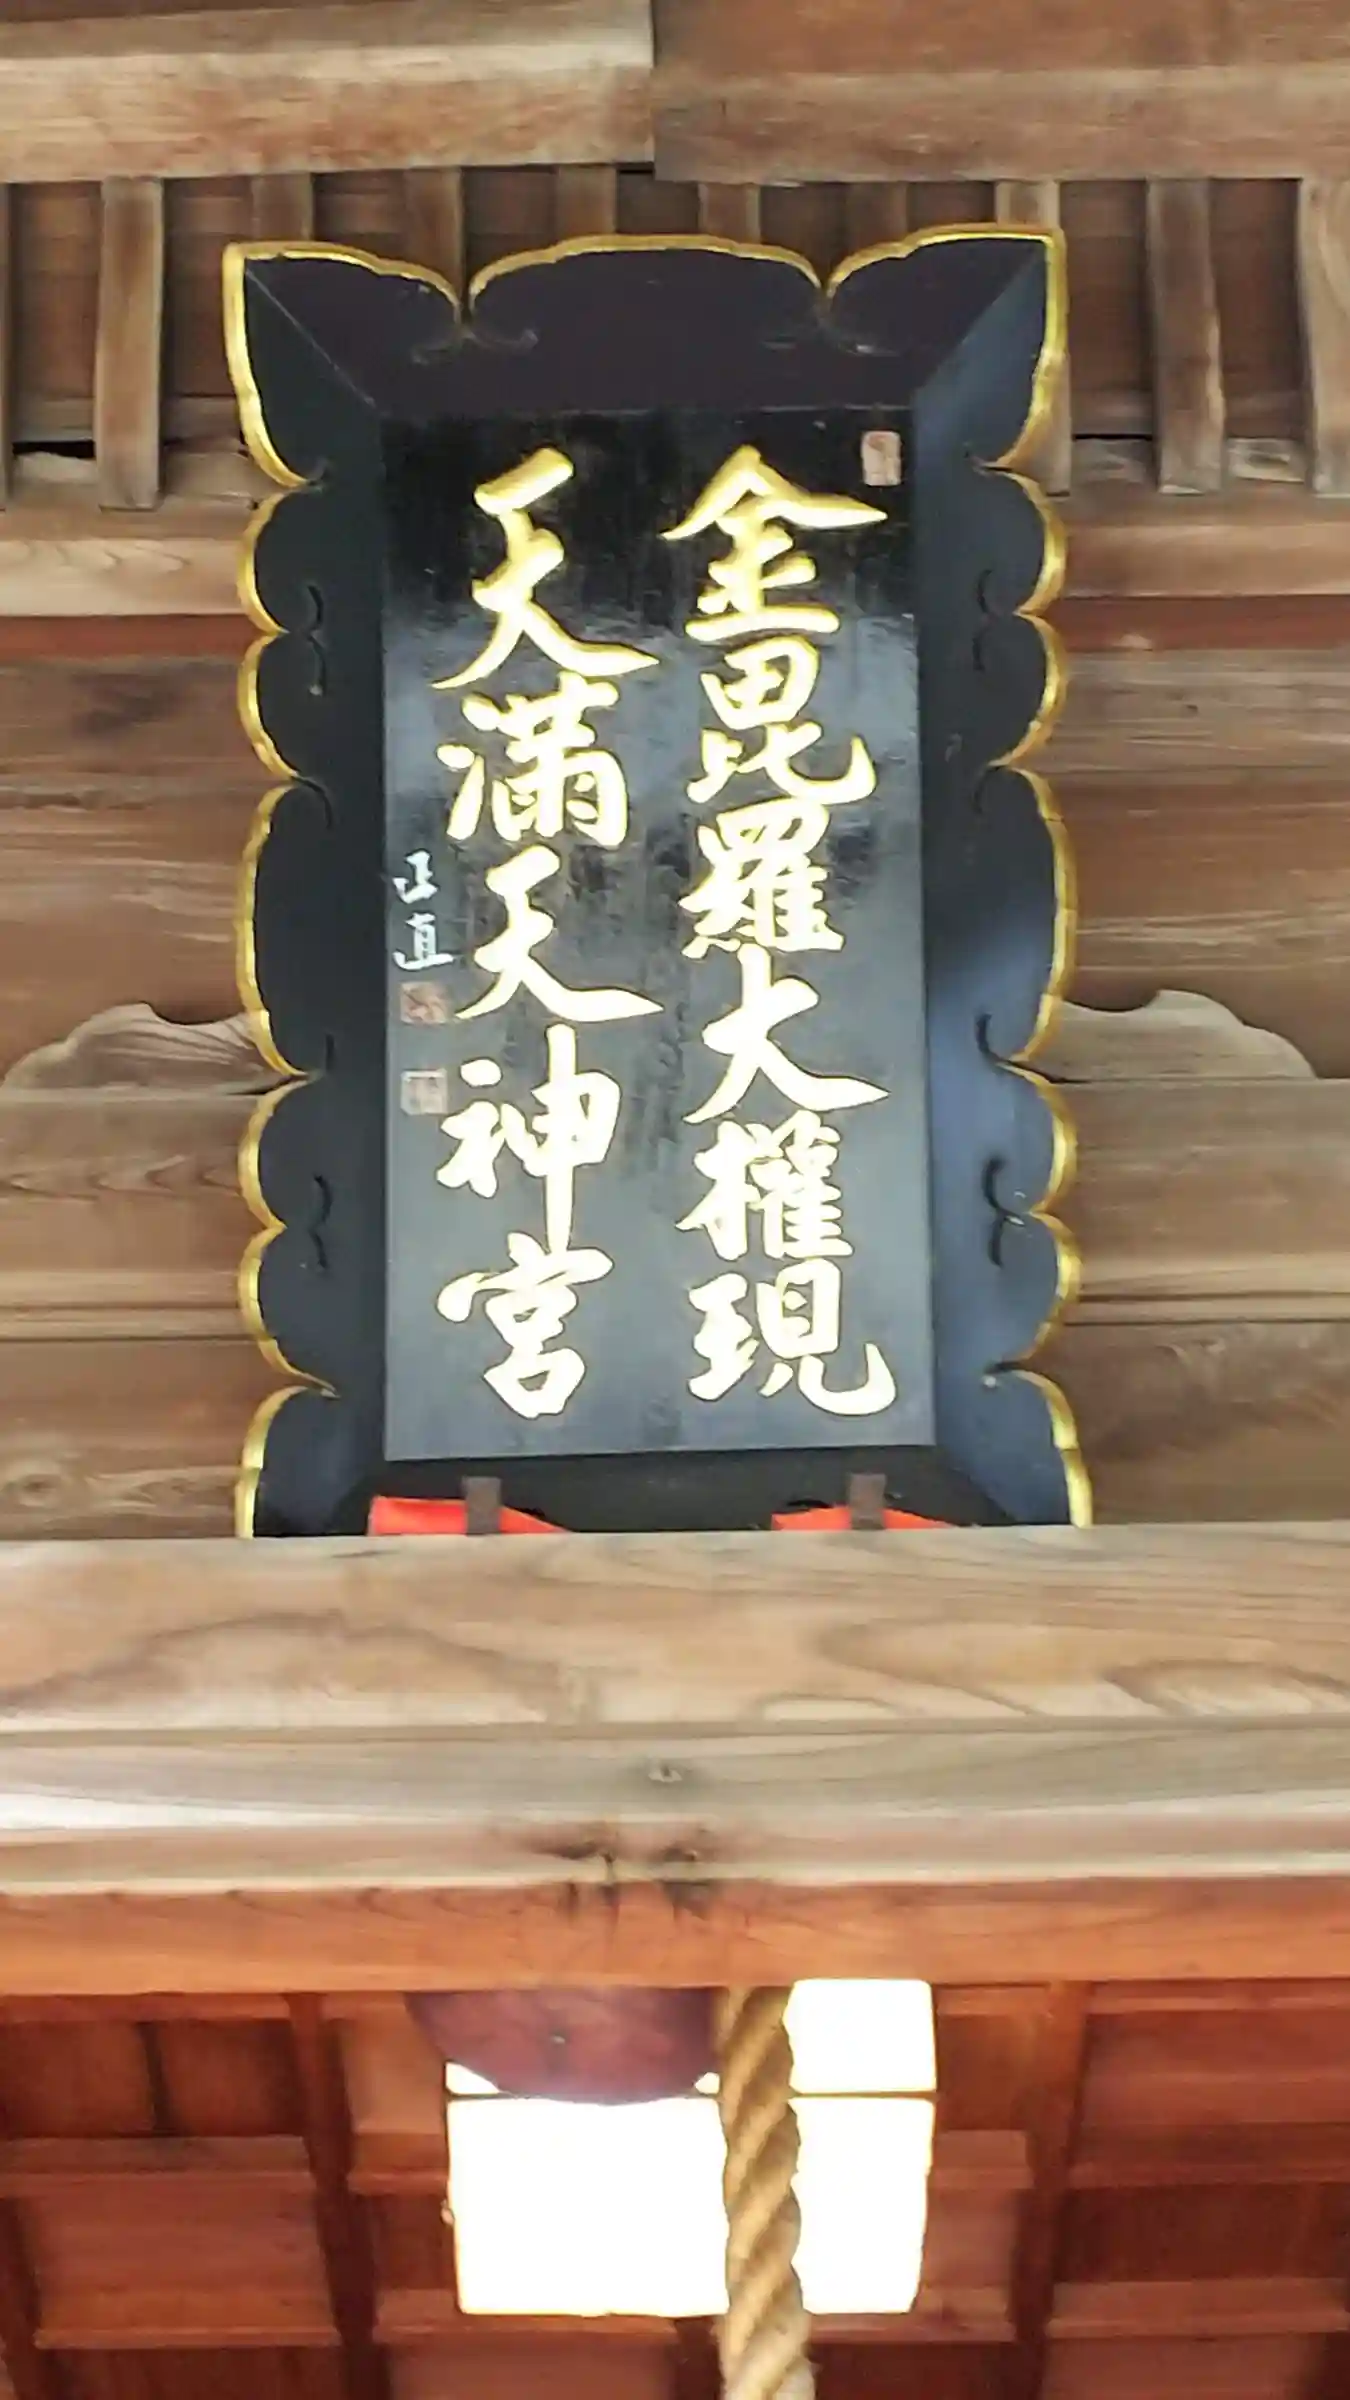 金毘羅大権現
天満天神宮
正直